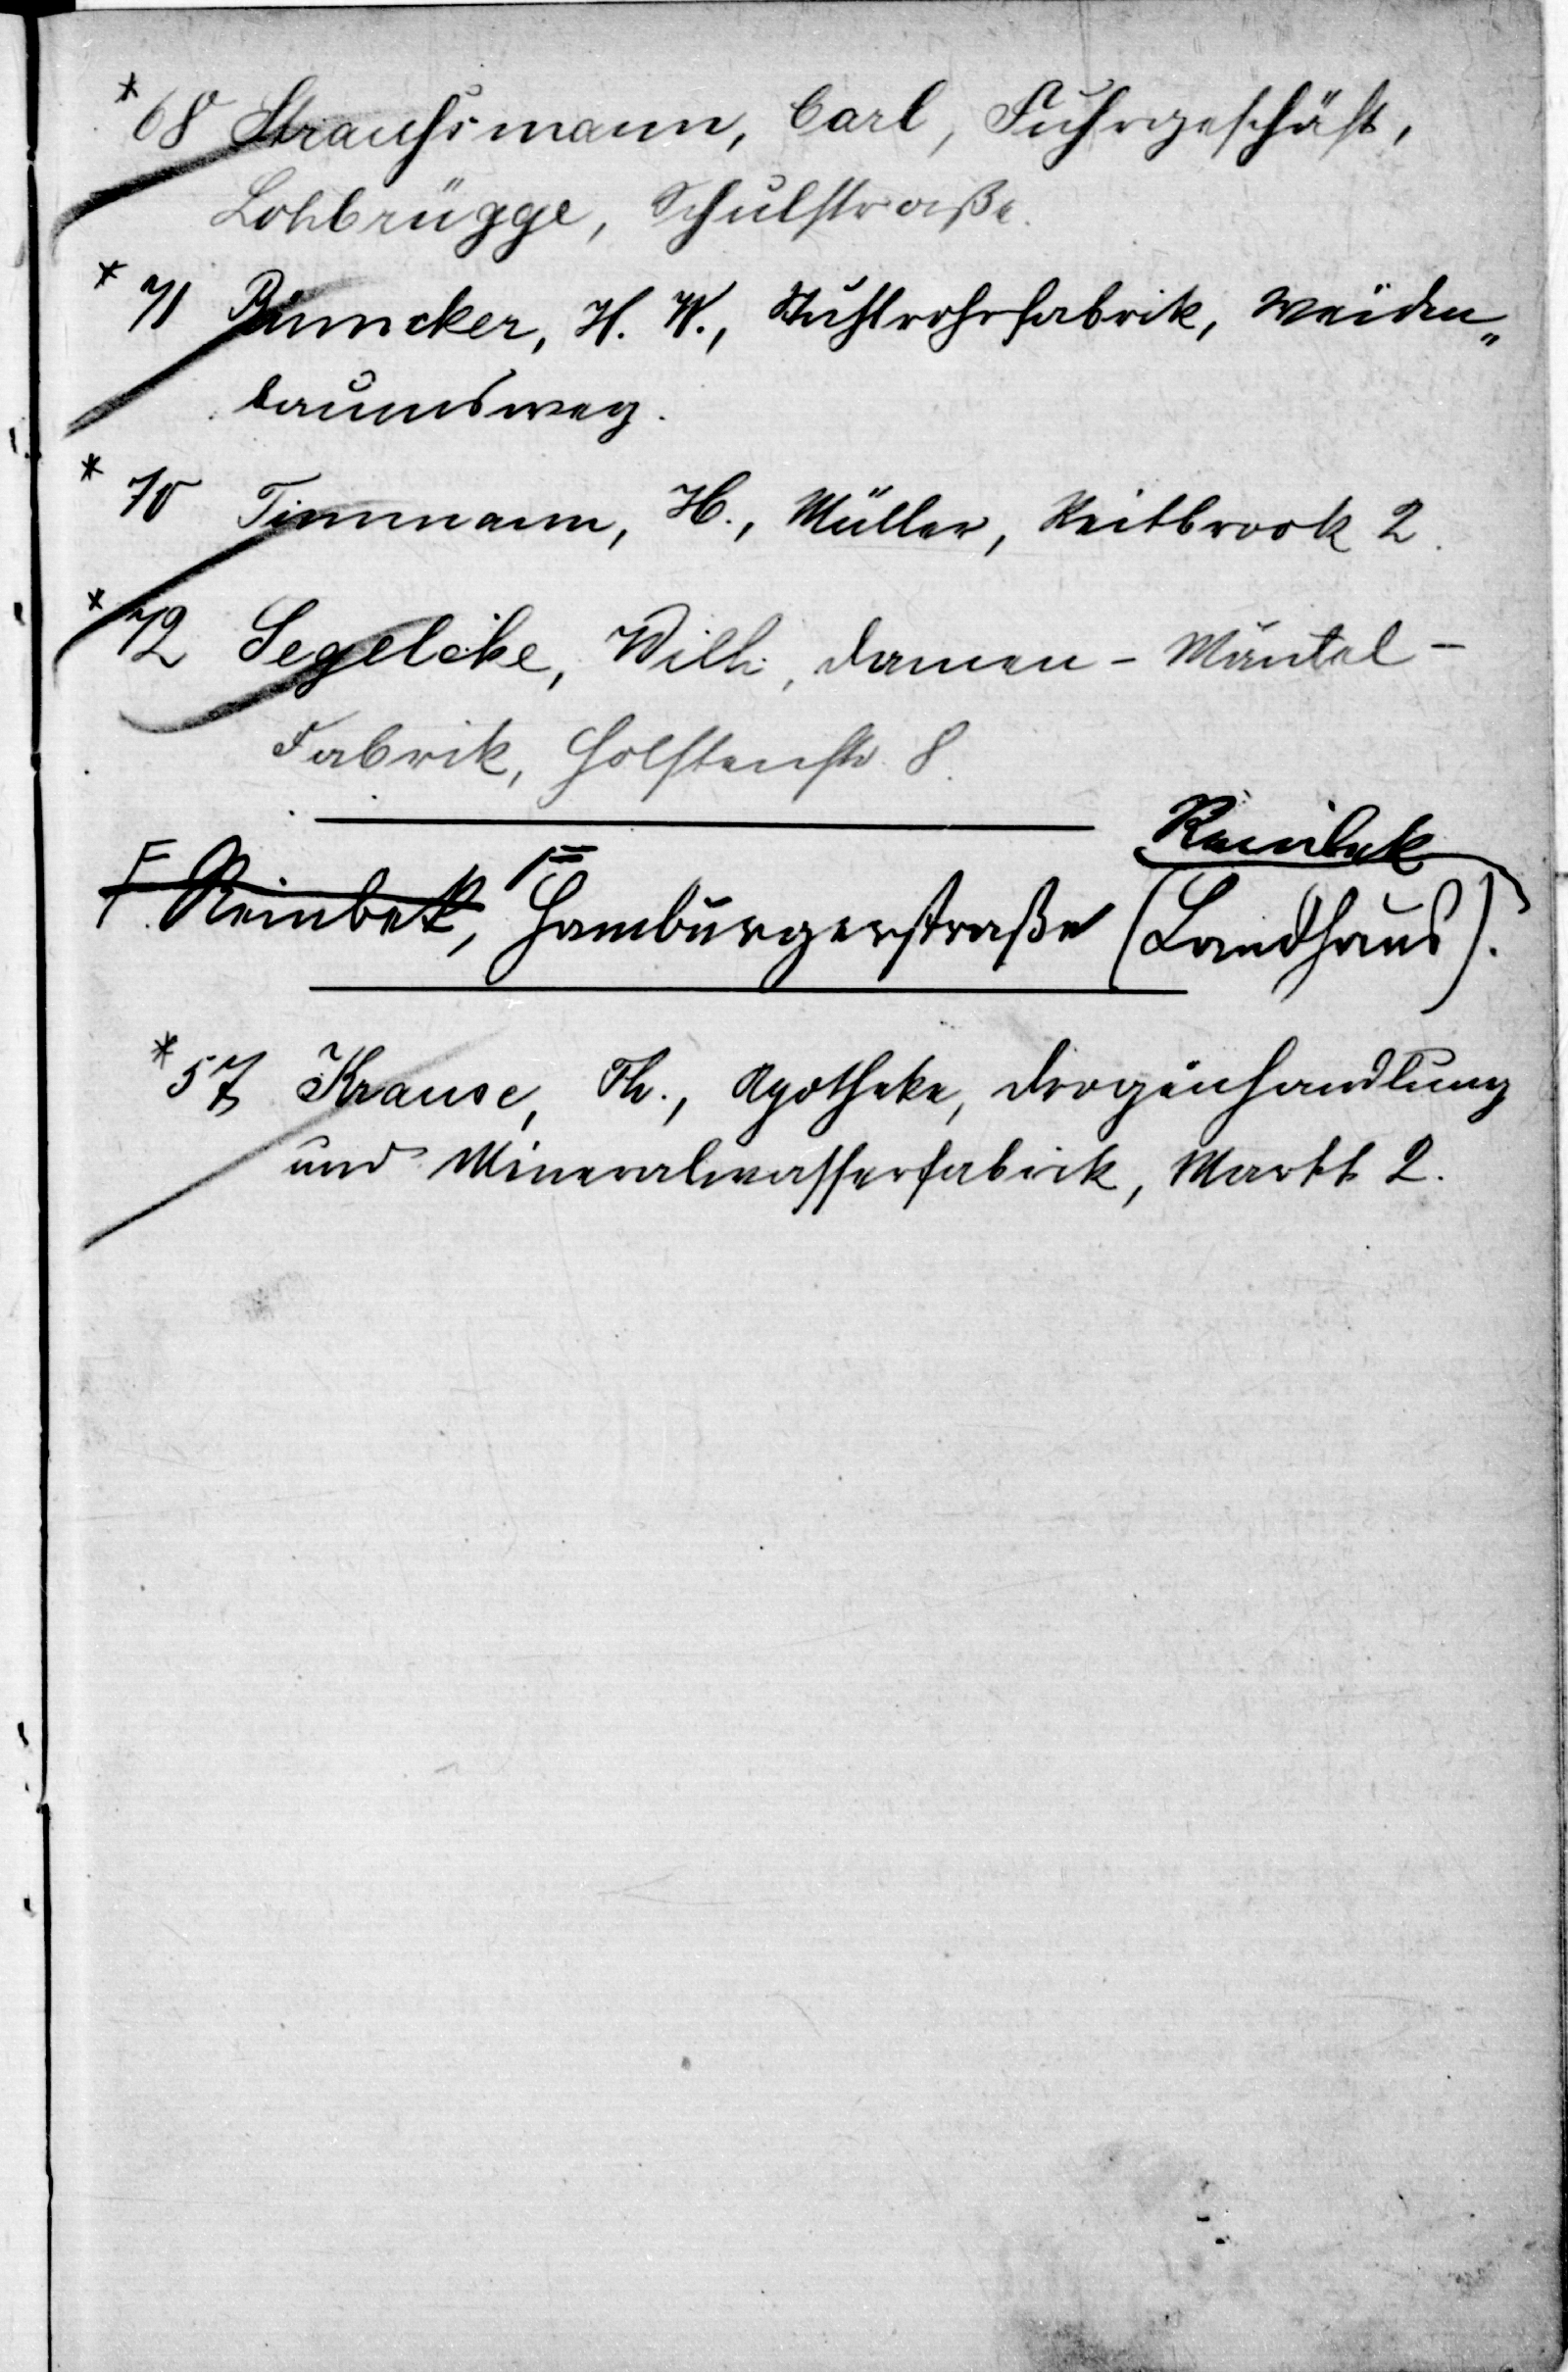 * 68 Straußsmann, Carl, Fuhrgeschäft,
Lohbrügge, Schulstraße.
* 71 Rünncker, H. W., Stuhlrohrfabrik, Weiden„
baumsweg.
* 70 Timmann, H., Müller, Reitbrook 2.
* 72 Segelcke, Wilh., Damen-Mäntel-
Fabrik, Holstenstr. 8.
Reinbek
F Reinbek, F Hamburgerstraße (Landhaus).
* 57 Krause, Th., Apotheke, Drogenhandlung
und Mineralwasserfabrik, Markt 2.